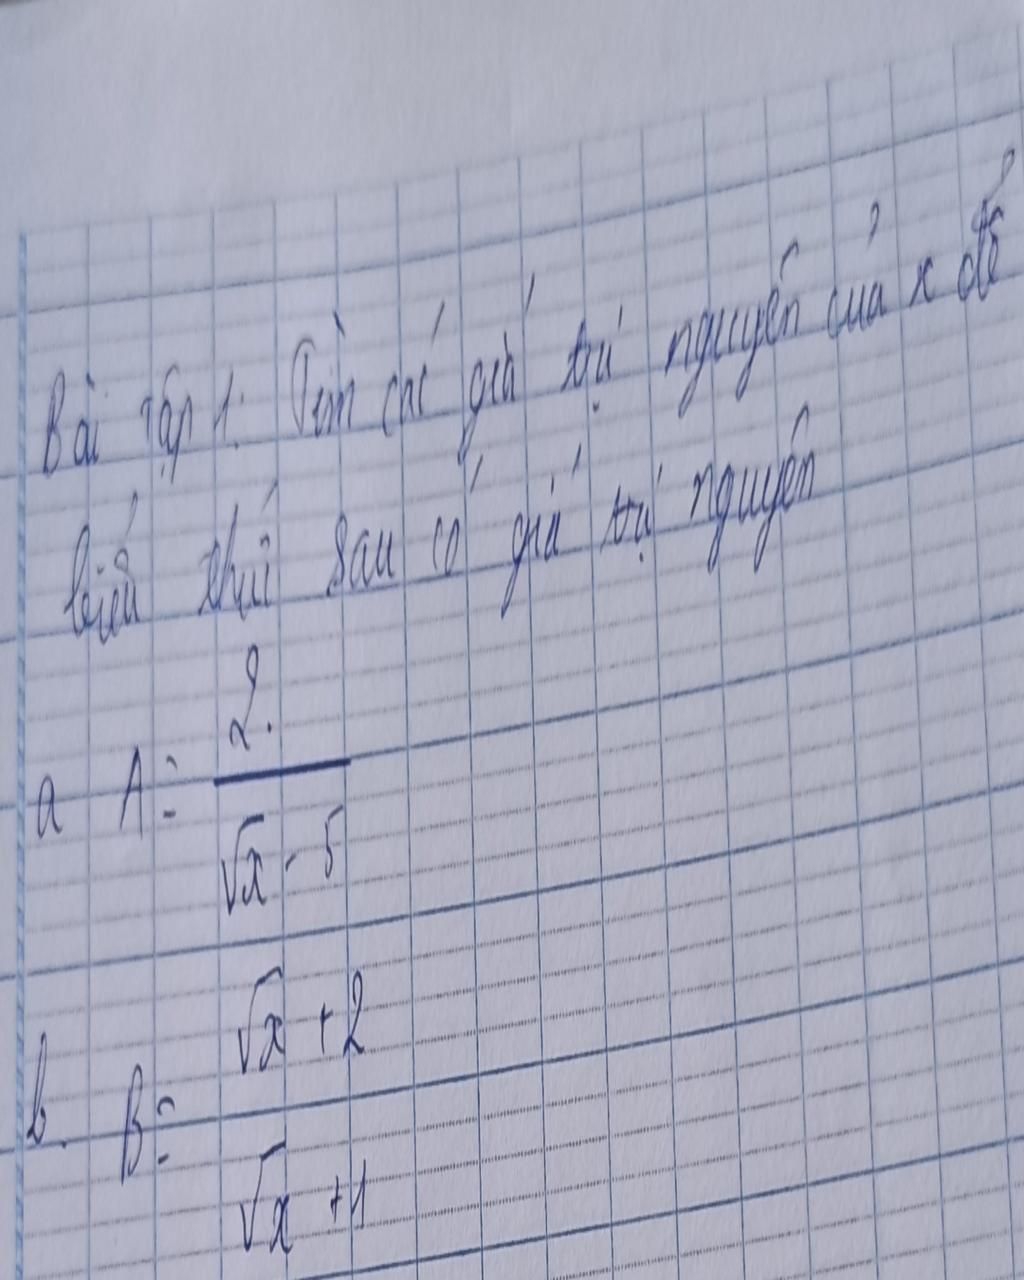 Bài tập 1: Tìm các giá trị nguyên của x để
biểu thức sau có giá trị nguyên
a A = 2. / √x - 5
b. B = √x + 2 / √x + 1